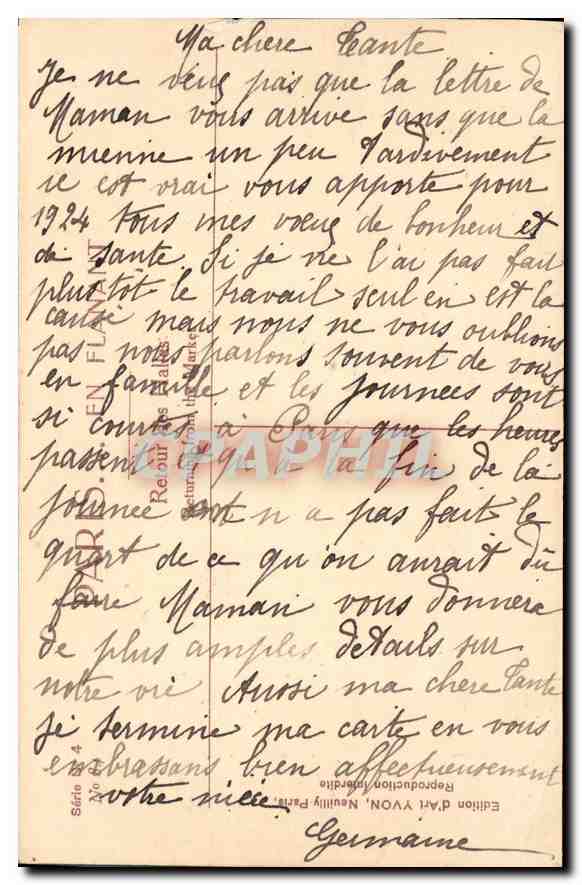 Ma chere Tante
Je ne veux pas que la lettre de
Maman vous arrive sans que la
mienne un peu tardivement
il est vrai vous apporte pour
1924 tous mes vœux de bonheur et
de santé. Si je ne l'ai pas fait
plus tôt le travail seul en est la
cause mais nous ne vous oublions
pas nous parlons souvent de vous
en famille et les journees sont
si courtes à Paris que les heures
passent et qu'a la fin de la
journee on n a pas fait le
quart de ce qu'on aurait dû
faire Maman vous donnera
de plus amples details sur
notre vie Aussi ma chere Tante
je termine ma carte en vous
embrassans bien affectueusement
votre nièce
Germaine
PARIS... EN FLANANT
Retour des Halles
Returning from the Market
Série 4
No
Edition d'Art YVON, Neuilly-Paris.
Reproduction Interdite
CPAPHIL